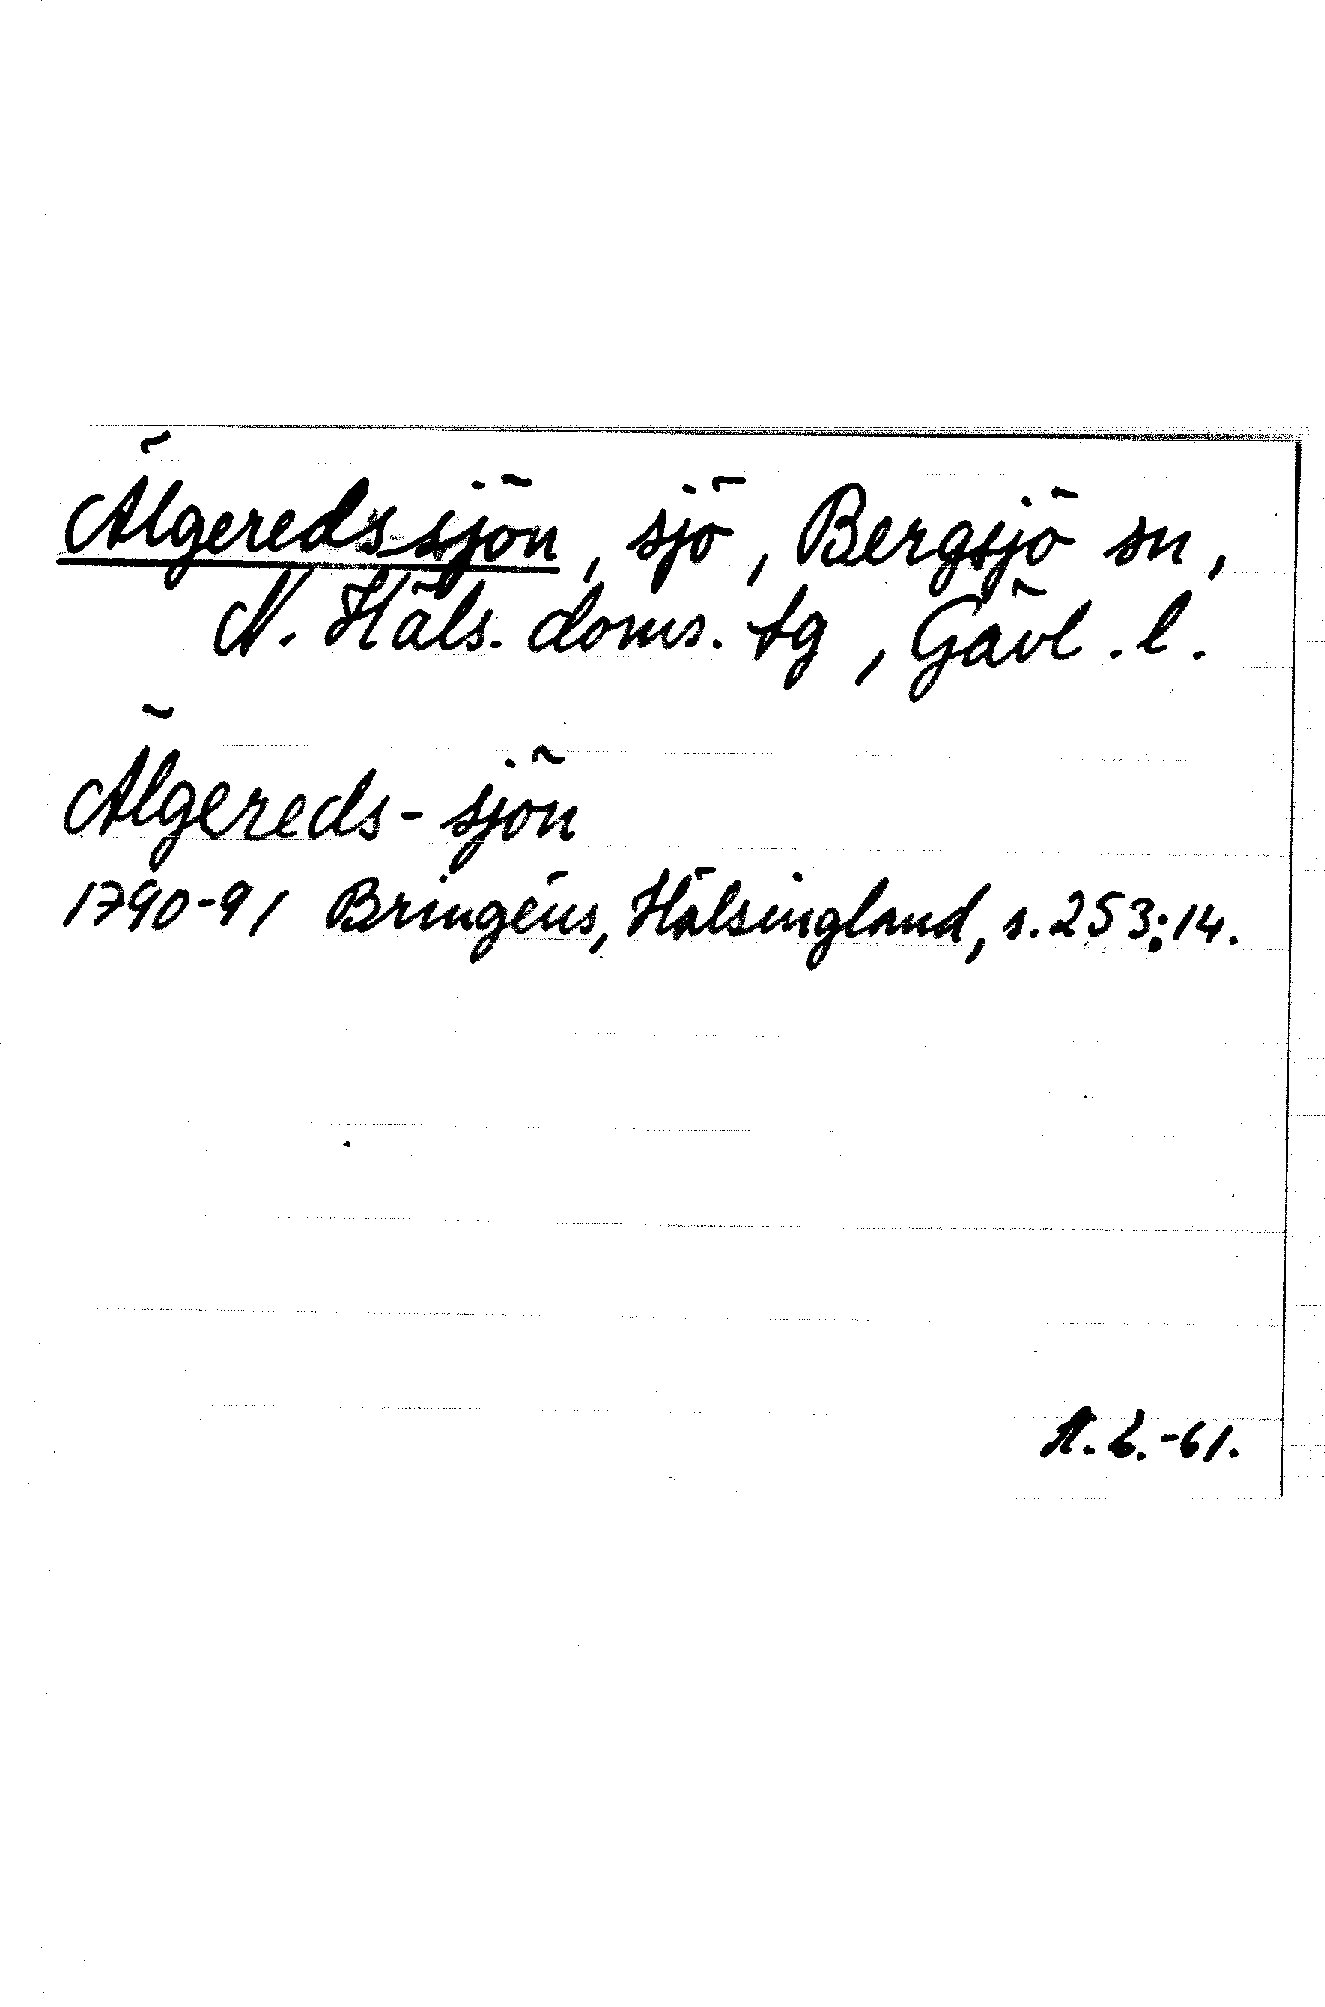 Älgeredssjön, sjö, Bergsjö sn,
N. Häls. doms. tg, Gävl. l.
Älgereds-sjön
1790-91 Bringéus, Hälsingland, s. 253:14.
-61.